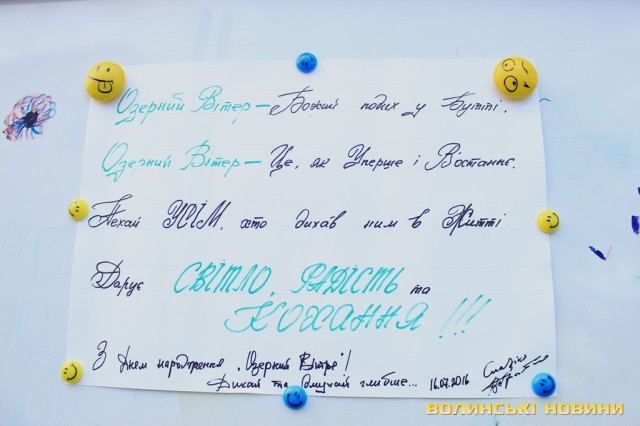 Озерний Вітер — Божий подих у Бутті.
Озерний Вітер — Це, як Уперше і Востаннє.
Нехай УСІМ, хто дихав ним в Житті
Дарує СВІТЛО, РАДІСТЬ та
КОХАННЯ!!!
З Днем народження „Озерний Вітре"!
Дихай та слухай глибше... 16.07.2016
ВОЛИНСЬКІ НОВИНИ